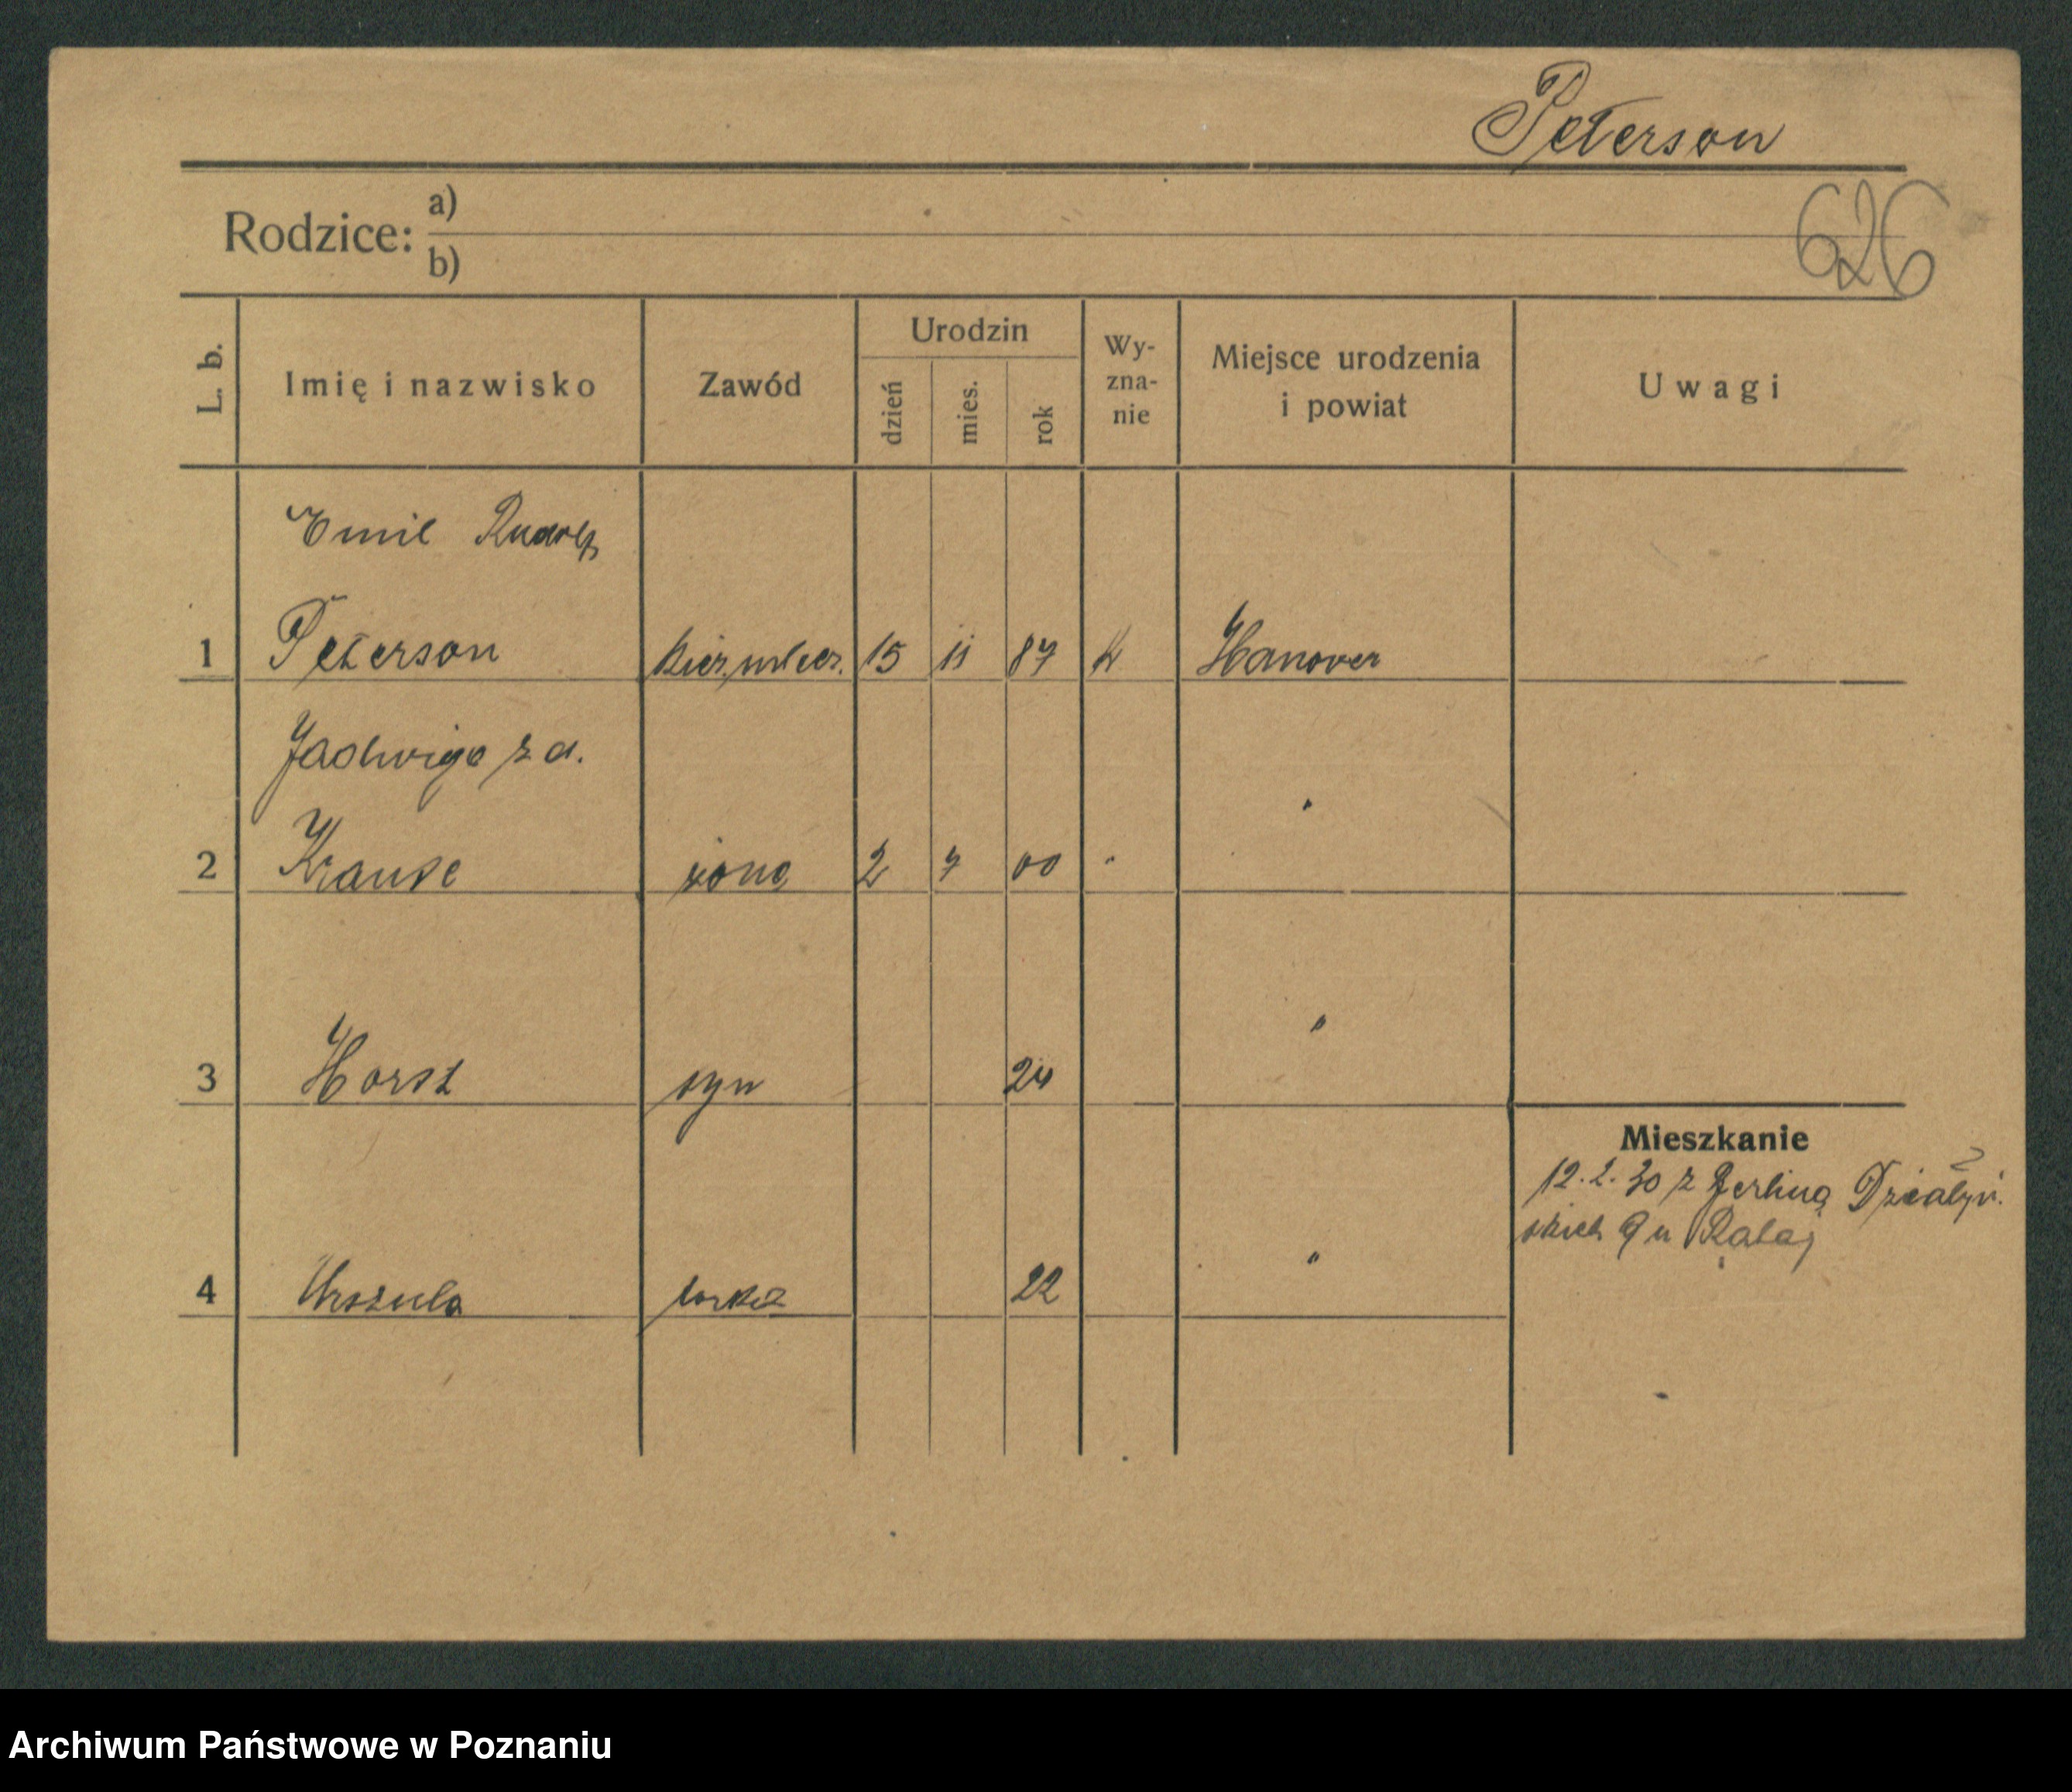 Peterson
626
Rodzice: a)
b)
L. b.
Imię i nazwisko
Zawód
Urodzin
dzień
mies.
rok
Wy-
zna-
nie
Miejsce urodzenia
i powiat
Uwagi
Emil Rudolf
1 Peterson kier. mlecz. 15 11 87 K Hanover
Jadwiga z d.
2 Krause żona 2 7 00 "
"
3 Horst syn 24 "
4 Urszula córka 22 "
Mieszkanie
12.2.30 z Berlina Działyń.
skich 9 u Rataj
Archiwum Państwowe w Poznaniu